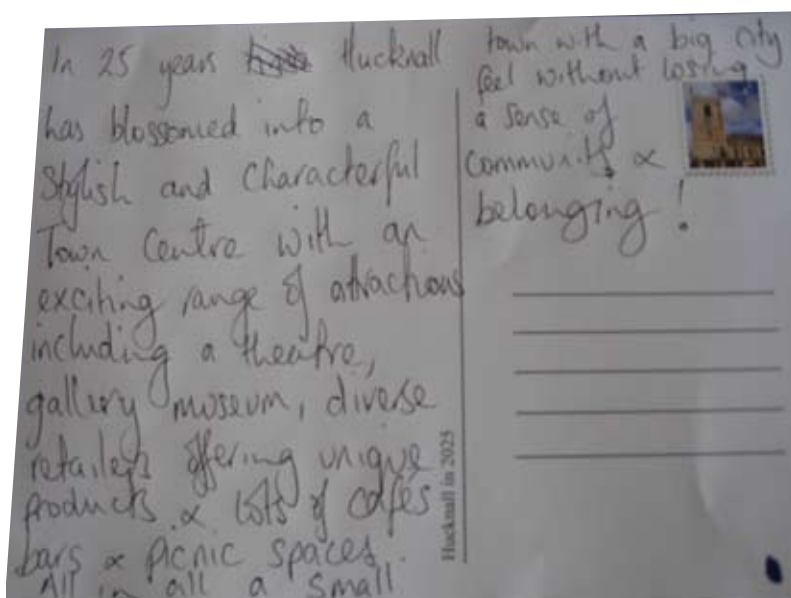 In 25 years Hucknall
has blossomed into a
Stylish and Characterful
Town Centre with an
exciting range of attractions
including a theatre,
gallery museum, diverse
retailers offering unique
products & lots of cafés
bars & picnic spaces.
All in all a small
town with a big city
feel without losing
a sense of
community &
belonging!
Hucknall in 2025